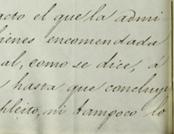 acto el que la admi
bienes encomendada
al, como se dice, a
hasta que concluye
pleito, ni tampoco lo